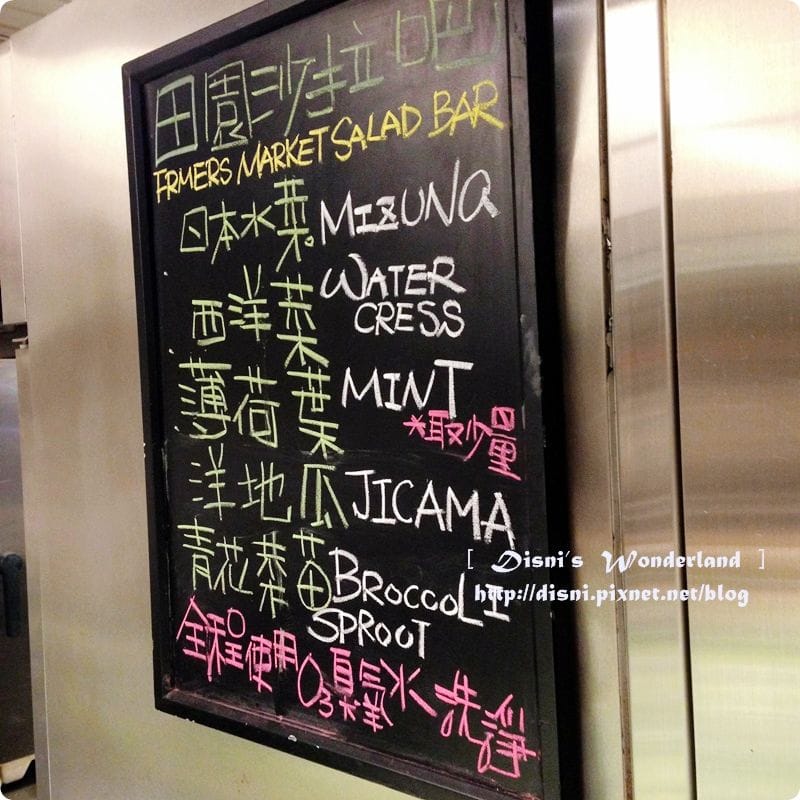 田園沙拉吧
FRMERS MARKET SALAD BAR
日本水菜 MIZUNA
西洋菜 WATER
CRESS
薄荷葉 MINT
*取少量
洋地瓜 JICAMA
青花菜苗 BROCCOLI
SPROOT
全程使用O3臭氧水洗淨
[ Disni's Wonderland ]
http://disni.pixnet.net/blog